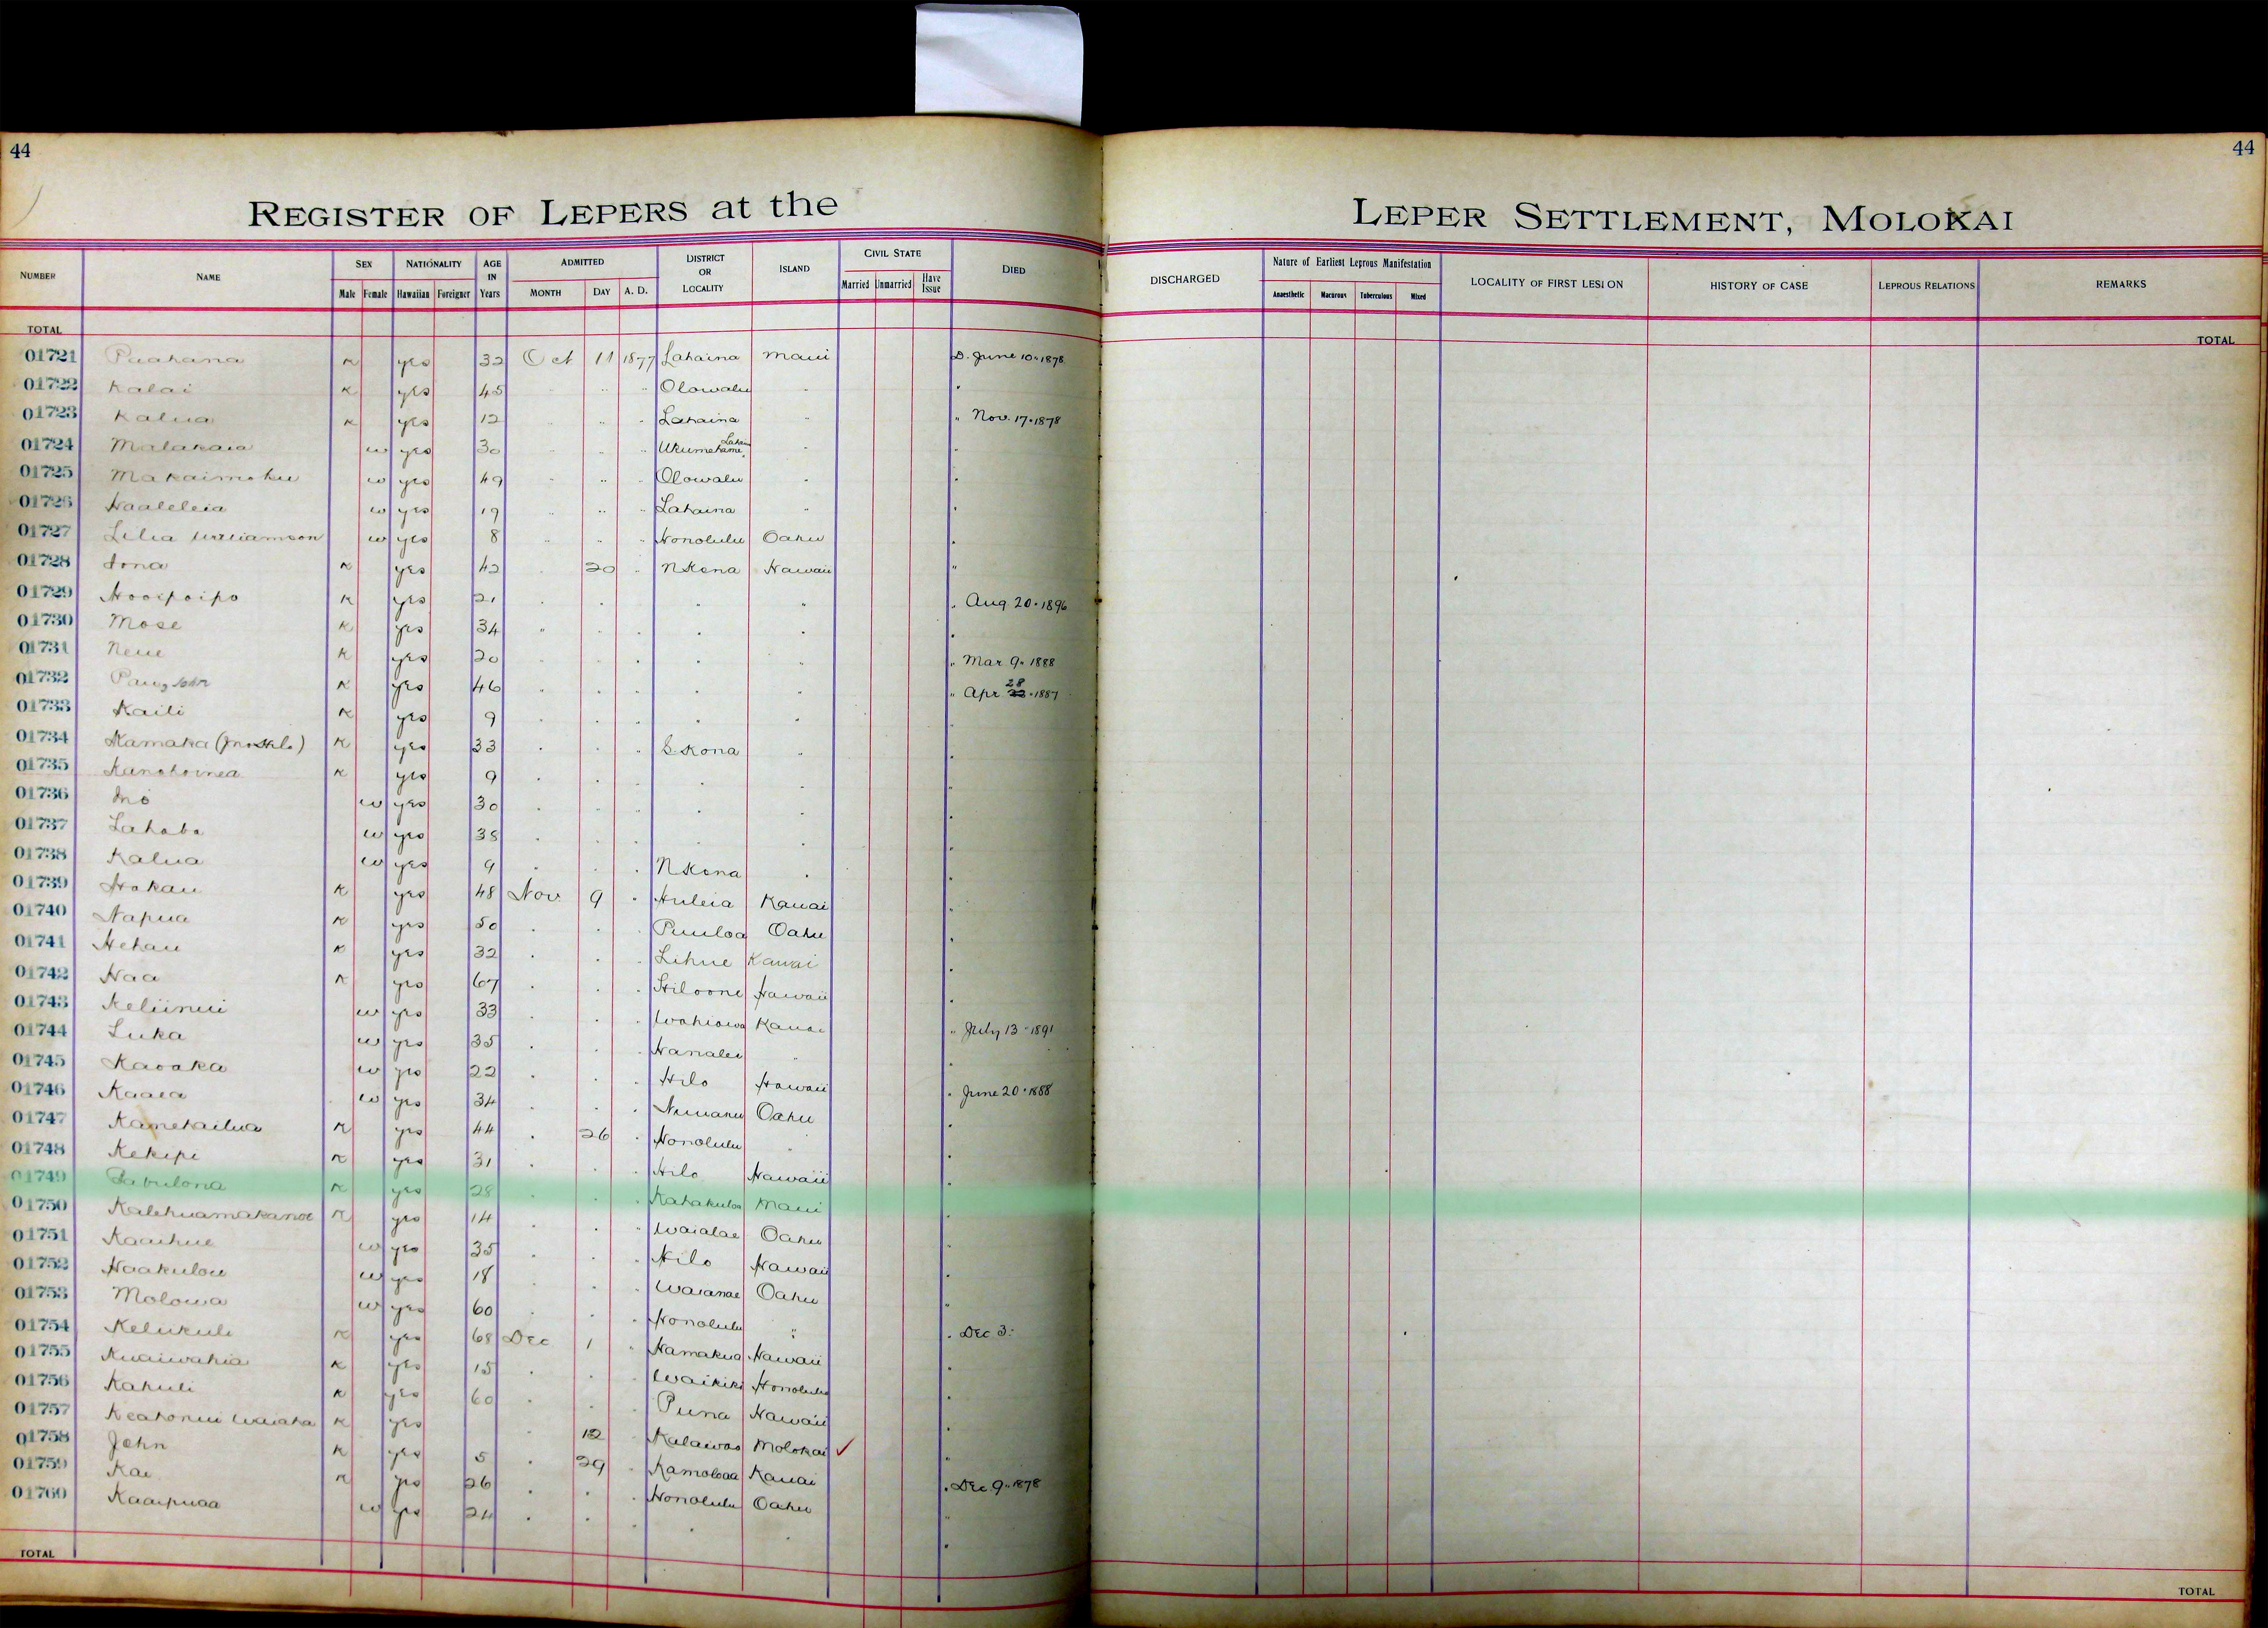 44
44
REGISTER OF LEPERS at the LEPER SETTLEMENT, MOLOKAI
NUMBER NAME SEX Male Female NATIONALITY Hawaiian Foreigner AGE IN Years ADMITTED MONTH DAY A. D. DISTRICT OR LOCALITY ISLAND CIVIL STATE Married Unmarried Have Issue DIED DISCHARGED Nature of Earliest Leprous Manifestation Anaesthetic Macurous Tuberculous Mixed LOCALITY OF FIRST LESION HISTORY OF CASE LEPROUS RELATIONS REMARKS
TOTAL TOTAL
01721 Puahana K yes 32 Oct 11 1877 Lahaina Maui D. June 10 " 1878
01722 Kalai K yes 45 " " " Olowalu " "
01723 Kalua K yes 12 " " " Lahaina " " Nov. 17 " 1878
01724 Malakaia w yes 30 " " " Ukumehame " "
01725 Makaimoku w yes 49 " " " Olowalu " "
01726 Haaleleia w yes 19 " " " Lahaina " "
01727 Lilia Williamson w yes 8 " " " Honolulu Oahu "
01728 Iona K yes 42 " 20 " N Kona Hawaii "
01729 Hooipoipo K yes 21 " " " " " Aug. 20 " 1896
01730 Mose K yes 34 " " " " " "
01731 Neue K yes 20 " " " " " Mar 9 " 1888
01732 John K yes 46 " " " " " Apr 28 " 1887
01733 Kaili K yes 9 " " " " " "
01734 Kamaka K yes 33 " " " S. Kona " "
01735 K yes 9 " " " " " "
01736 w yes 30 " " " " " "
01737 w yes 38 " " " " " "
01738 Kalua w yes 9 " " " N Kona " "
01739 Hokau K yes 48 Nov 9 " Huleia Kauai "
01740 Napua K yes 50 " " " Puuloa Oahu "
01741 Hehau K yes 32 " " " Lihue Kauai "
01742 Naa K yes 67 " " " Hiloone Hawaii "
01743 Keliinui w yes 33 " " " Wahiawa Kauai " July 13 " 1891
01744 Luka w yes 35 " " " Hanalei " "
01745 Kaoaka w yes 22 " " " Hilo Hawaii " June 20 " 1888
01746 Kaaea w yes 34 " " " Nuuanu Oahu "
01747 Kamekailua K yes 44 " 26 " Honolulu " "
01748 Kekipi K yes 31 " " " Hilo Hawaii "
01749 K yes 28 " " " Kahakuloa Maui "
01750 Kalehuamakanoe K yes 14 " " " Waialae Oahu "
01751 Kaaihue w yes 35 " " " Hilo Hawaii "
01752 Haakulou w yes 18 " " " Waianae Oahu "
01753 Molowa w yes 60 " " " Honolulu " " Dec 3.
01754 Kelukuli K yes 68 Dec 1 " Hamakua Hawaii "
01755 Kuaiwahia K yes 15 " " " Waikiki Honolulu "
01756 Kahuli K yes 60 " " " Puna Hawaii "
01757 Keahonui Waiaha K yes " 12 " Kalawao Molokai ✓ "
01758 John K yes 5 " 29 " Kamoloaa Kauai " Dec 9 " 1878
01759 Kai K yes 26 " " " Honolulu Oahu "
01760 Kaaipuaa w yes 24 " " " " " "
TOTAL TOTAL